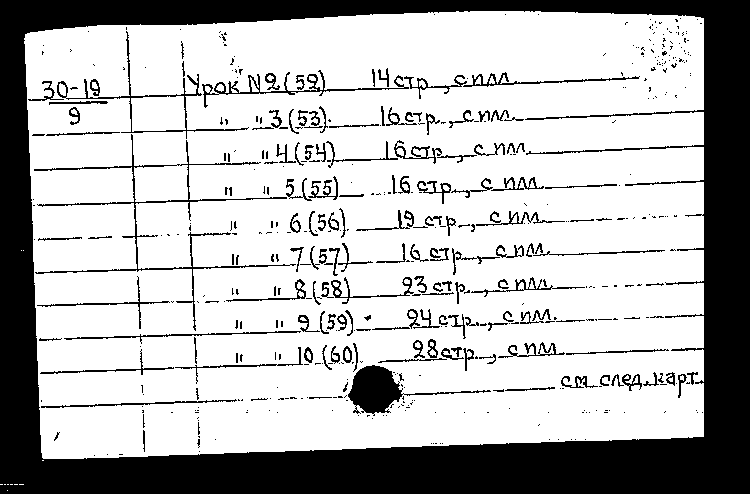 30-19
9
Урок N2 (52) 14 стр., с илл.
" " 3 (53). 16 стр., с илл.
" " 4 (54) 16 стр., с илл.
" " 5 (55) 16 стр., с илл.
" " 6 (56) 19 стр., с илл.
" " 7 (57) 16 стр., с илл.
" " 8 (58) 23 стр., с илл.
" " 9 (59) 24 стр., с илл.
" " 10 (60) 28 стр., с илл.
см след. карт.